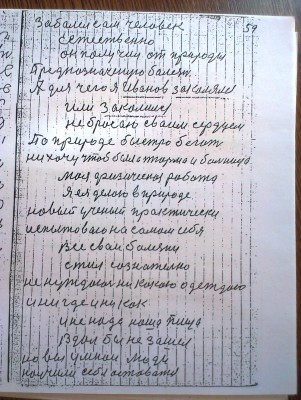 59
Заболел сам человек
естественно
он получил от природы
Предназначенную болезнь
А для чего я Иванов закаляле
или Закалился
не бросаю своим сердцем
По природе быстро бегать
ни хочу чтоб была тюрма и больница
моя физическая работа
Я ея делаю в природе
новый ученый практически
испытоваю на самом себя
Все свои болезни
стил сознателно
не нуждаюсь ни какою одеждою
и ни где и ни как
и не надо наша пища
В дом бы не зашел
новыи умнои люди
научили себя оставати